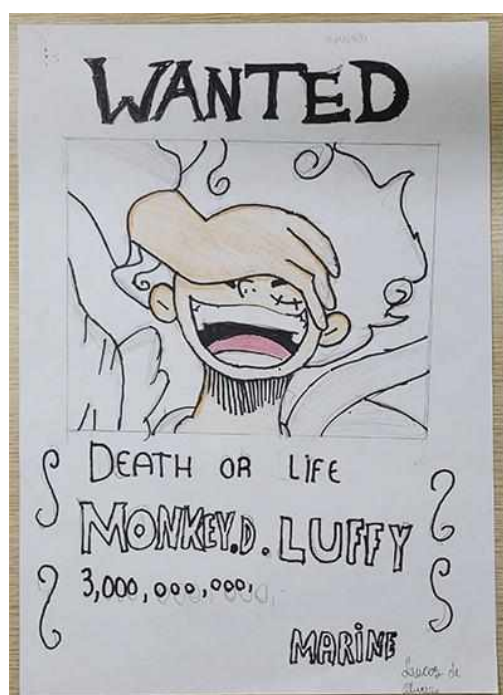 WANTED
DEATH OR LIFE
MONKEY.D. LUFFY
3,000,000,000,
MARINE
Lucas de